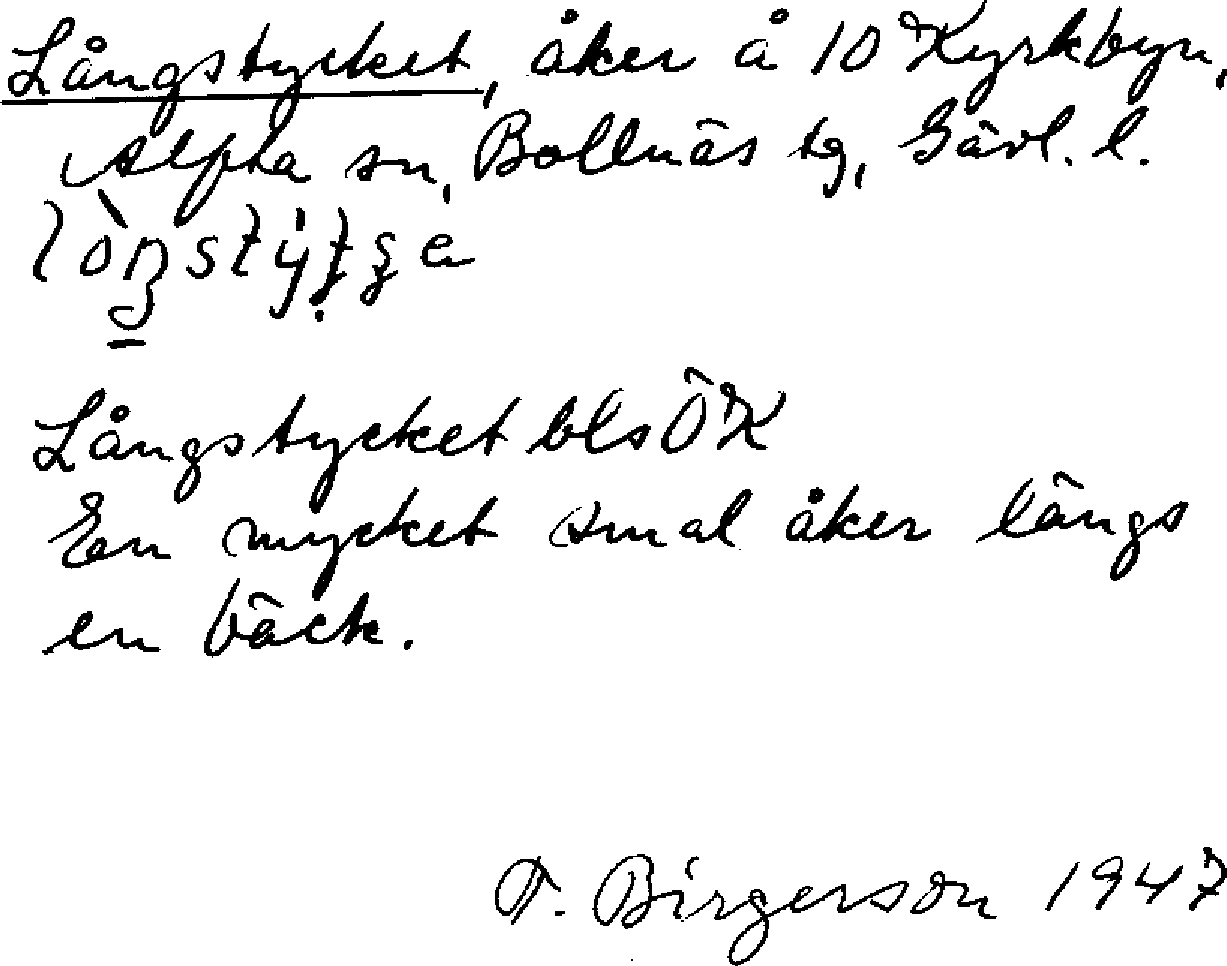 Långstycket, åker å 10 Kyrkbyn,
Alfta sn, Bollnäs tg, Gävl. l.
Långstycket bls ÖK
En mycket smal åker längs
en bäck.
T. Birgerson 1947